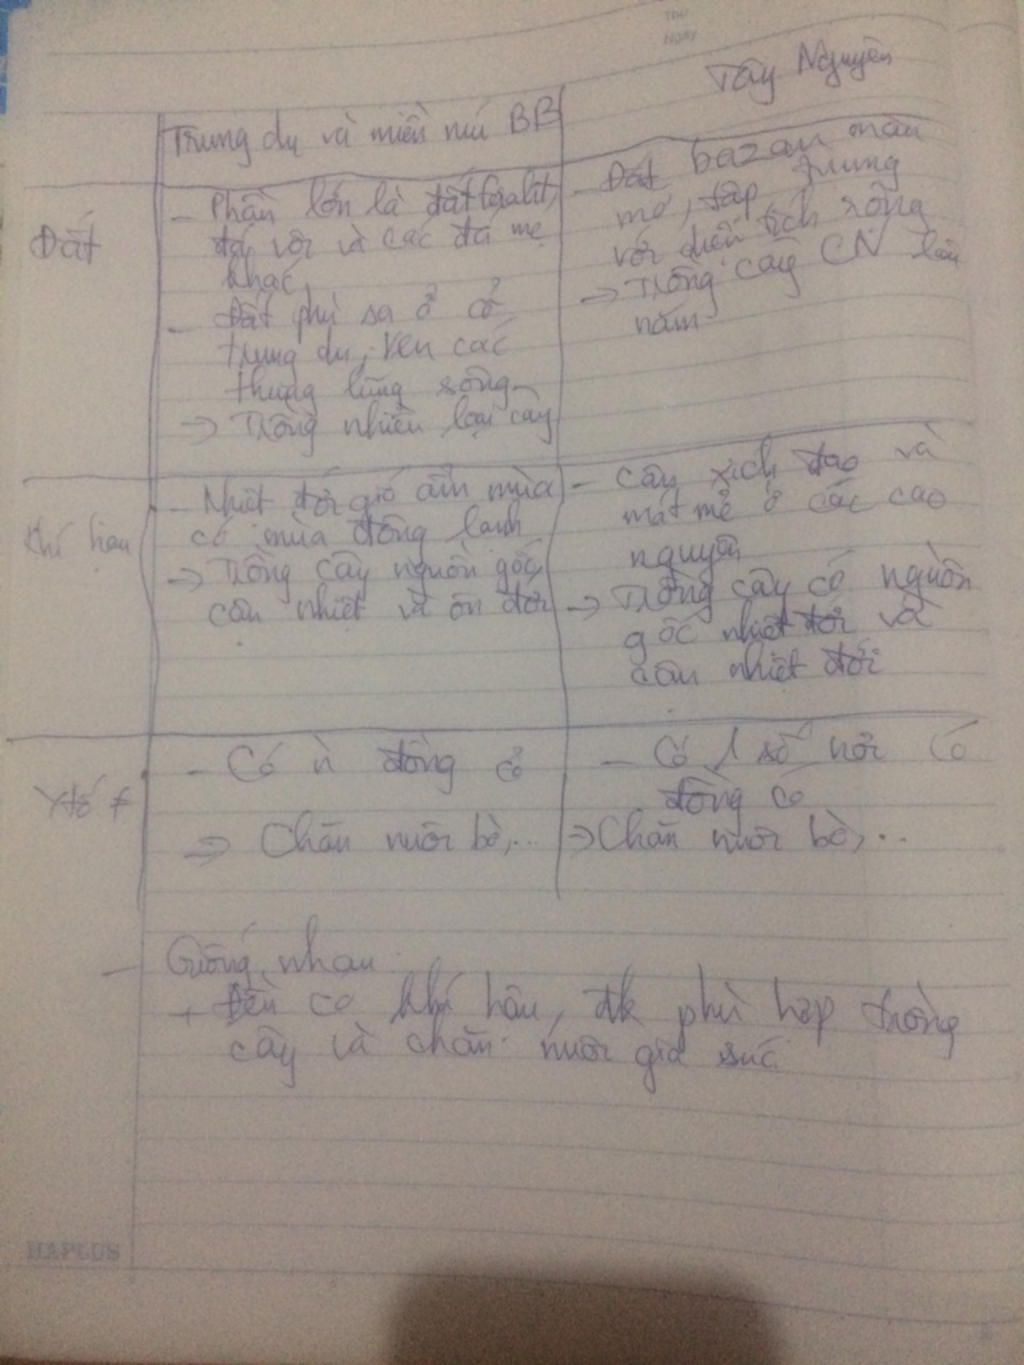 Thứ
Ngày
Tây Nguyên
Trung du và miền núi BB
Đất
- Phần lớn là đất feralit,
đá vôi và các đá mẹ
khác
- Đất phù sa ở cổ
trung du, ven các
thung lũng sông
=> Trồng nhiều loại cây
- Đất bazan màu
mỡ, tập trung
với diện tích rộng
=> Trồng cây CN lâu
năm
Khí hậu
- Nhiệt đới gió ẩm mùa
có mùa đông lạnh
=> Trồng cây nguồn gốc
cận nhiệt và ôn đới
- Cận xích đạo và
mát mẻ ở các cao
nguyên
=> Trồng cây có nguồn
gốc nhiệt đới và
cận nhiệt đới
Ytố ≠
- Có n đồng cỏ
=> Chăn nuôi bò,...
- Có 1 số nơi có
đồng cỏ
=> Chăn nuôi bò, ..
- Giống nhau
+ Đều có khí hậu, đk phù hợp trồng
cây và chăn nuôi gia súc
HAPLUS